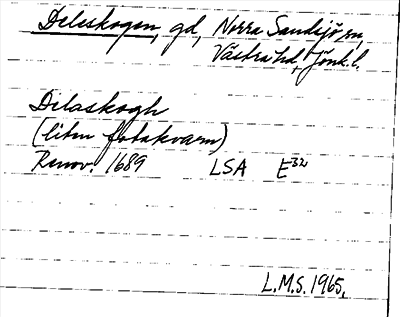 Deleskogen, gd, Norra Sandsjö sn,
Västra hd, Jönk.l.
Dilaskogh
(liten fotakvarn)
Renov. 1689 LSA E32
L.M.S. 1965.